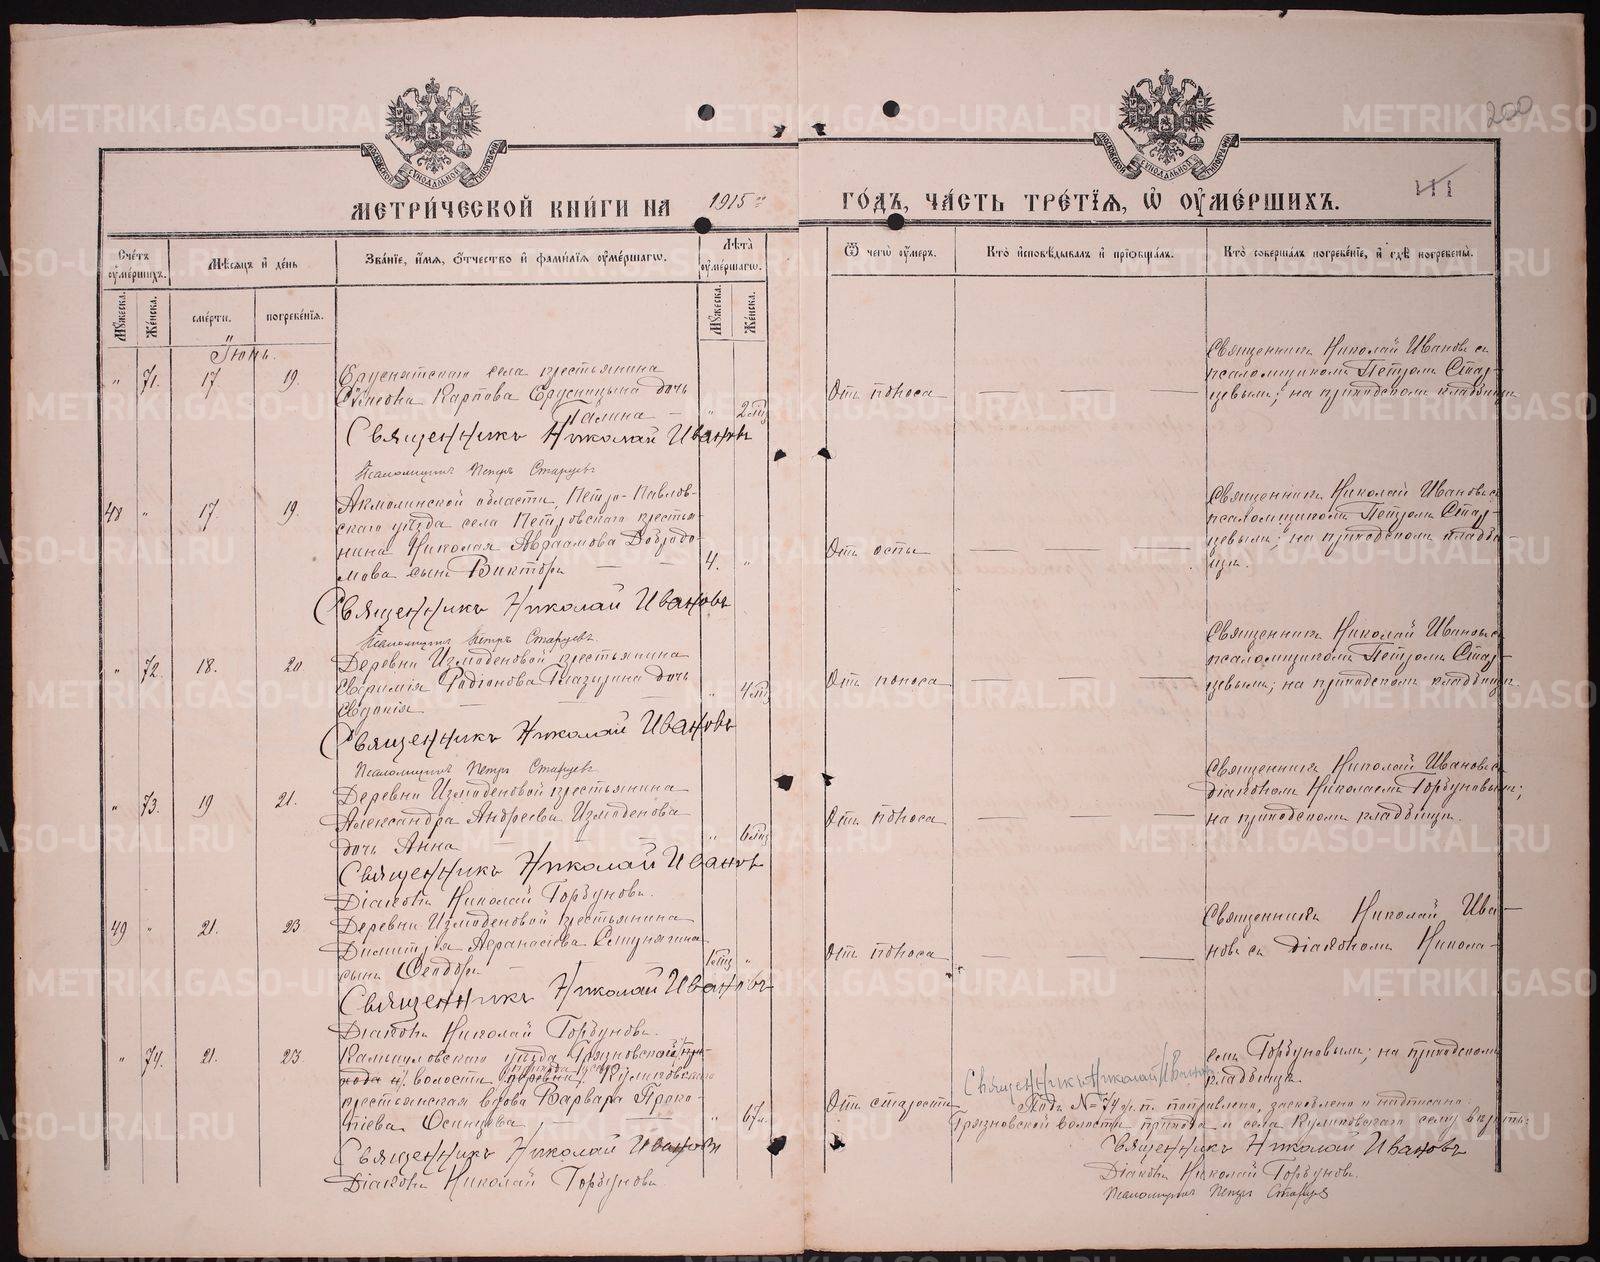 200
111
МЕТРИЧЕСКОЙ КНИГИ НА 1915 ГОДЪ, ЧАСТЬ ТРЕТІЯ, Ѡ ОУМЕРШИХЪ.
Счетъ оумершихъ.
Мѣсяцъ и день
Званіе, имя, отчество и фамилія оумершагѡ.
Лѣта оумершагѡ.
Ѿ чегѡ оумеръ.
Кто исповѣдывалъ и пріобщалъ.
Кто совершалъ погребеніе, и гдѣ погребены.
Мужеска.
Женска.
смерти.
погребенія.
Мужеска.
Женска.
Іюнь.
" 71. 17 19.
села крестьянина
Симеона Карпова дочь
Галина —
" 2 мц
Отъ поноса
Священникъ Николай Ивановъ съ
псаломщикомъ Петромъ Стар-
цевымъ; на приходскомъ кладбищѣ
Священникъ Николай Ивановъ
Псаломщикъ Петръ Старцевъ
48 " 17. 19.
Акмолинской области, Петро-Павлов-
скаго уѣзда села Петровскаго крестья-
нина Николая Авраамова Добродо-
мова сынъ Викторъ — —
4. "
Отъ оспы
Священникъ Николай Ивановъ съ
псаломщикомъ Петромъ Стар-
цевымъ; на приходскомъ кладби-
щѣ.
Священникъ Николай Ивановъ
Псаломщикъ Петръ Старцевъ
" 72. 18. 20.
Деревни Измоденовой крестьянина
Евфимія Родіонова Глазырина дочь
Евдокія
" 4 мц
Отъ поноса
Священникъ Николай Ивановъ съ
псаломщикомъ Петромъ Стар-
цевымъ; на приходскомъ кладбищѣ.
Священникъ Николай Ивановъ
Псаломщикъ Петръ Старцевъ
" 73. 19 21.
Деревни Измоденовой крестьянина
Александра Андреева Измоденова
дочь Анна —
" 6 мц
Отъ поноса
Священникъ Николай Ивановъ съ
діакономъ Николаемъ Горбуновымъ;
на приходскомъ кладбищѣ.
Священникъ Николай Ивановъ
Діаконъ Николай Горбуновъ.
49 " 21. 23
Деревни Измоденовой крестьянина
Димитрія Аѳанасіева
сынъ Ѳеодоръ —
1 мц "
Отъ поноса
Священникъ Николай Ива-
новъ съ діакономъ Никола-
емъ Горбуновымъ; на приходскомъ
кладбищѣ.
Священникъ Николай Ивановъ
Діаконъ Николай Горбуновъ.
" 74. 21. 23.
Камышловскаго уѣзда Грязновской при-
хода и волости прихода села деревни Куликовскаго
крестьянская вдова Варвара Проко-
піева Осинцева —
" 67 л.
Отъ старости
Священникъ Николай Ивановъ
Подъ № 74 ж. п. поправлено, заскоблено и надписано:
Грязновской волости прихода и села Куликовскаго сему вѣрить:
Священникъ Николай Ивановъ
Діаконъ Николай Горбуновъ.
Псаломщикъ Петръ Старцевъ
Священникъ Николай Ивановъ
Діаконъ Николай Горбуновъ
METRIKI.GASO-URAL.RU